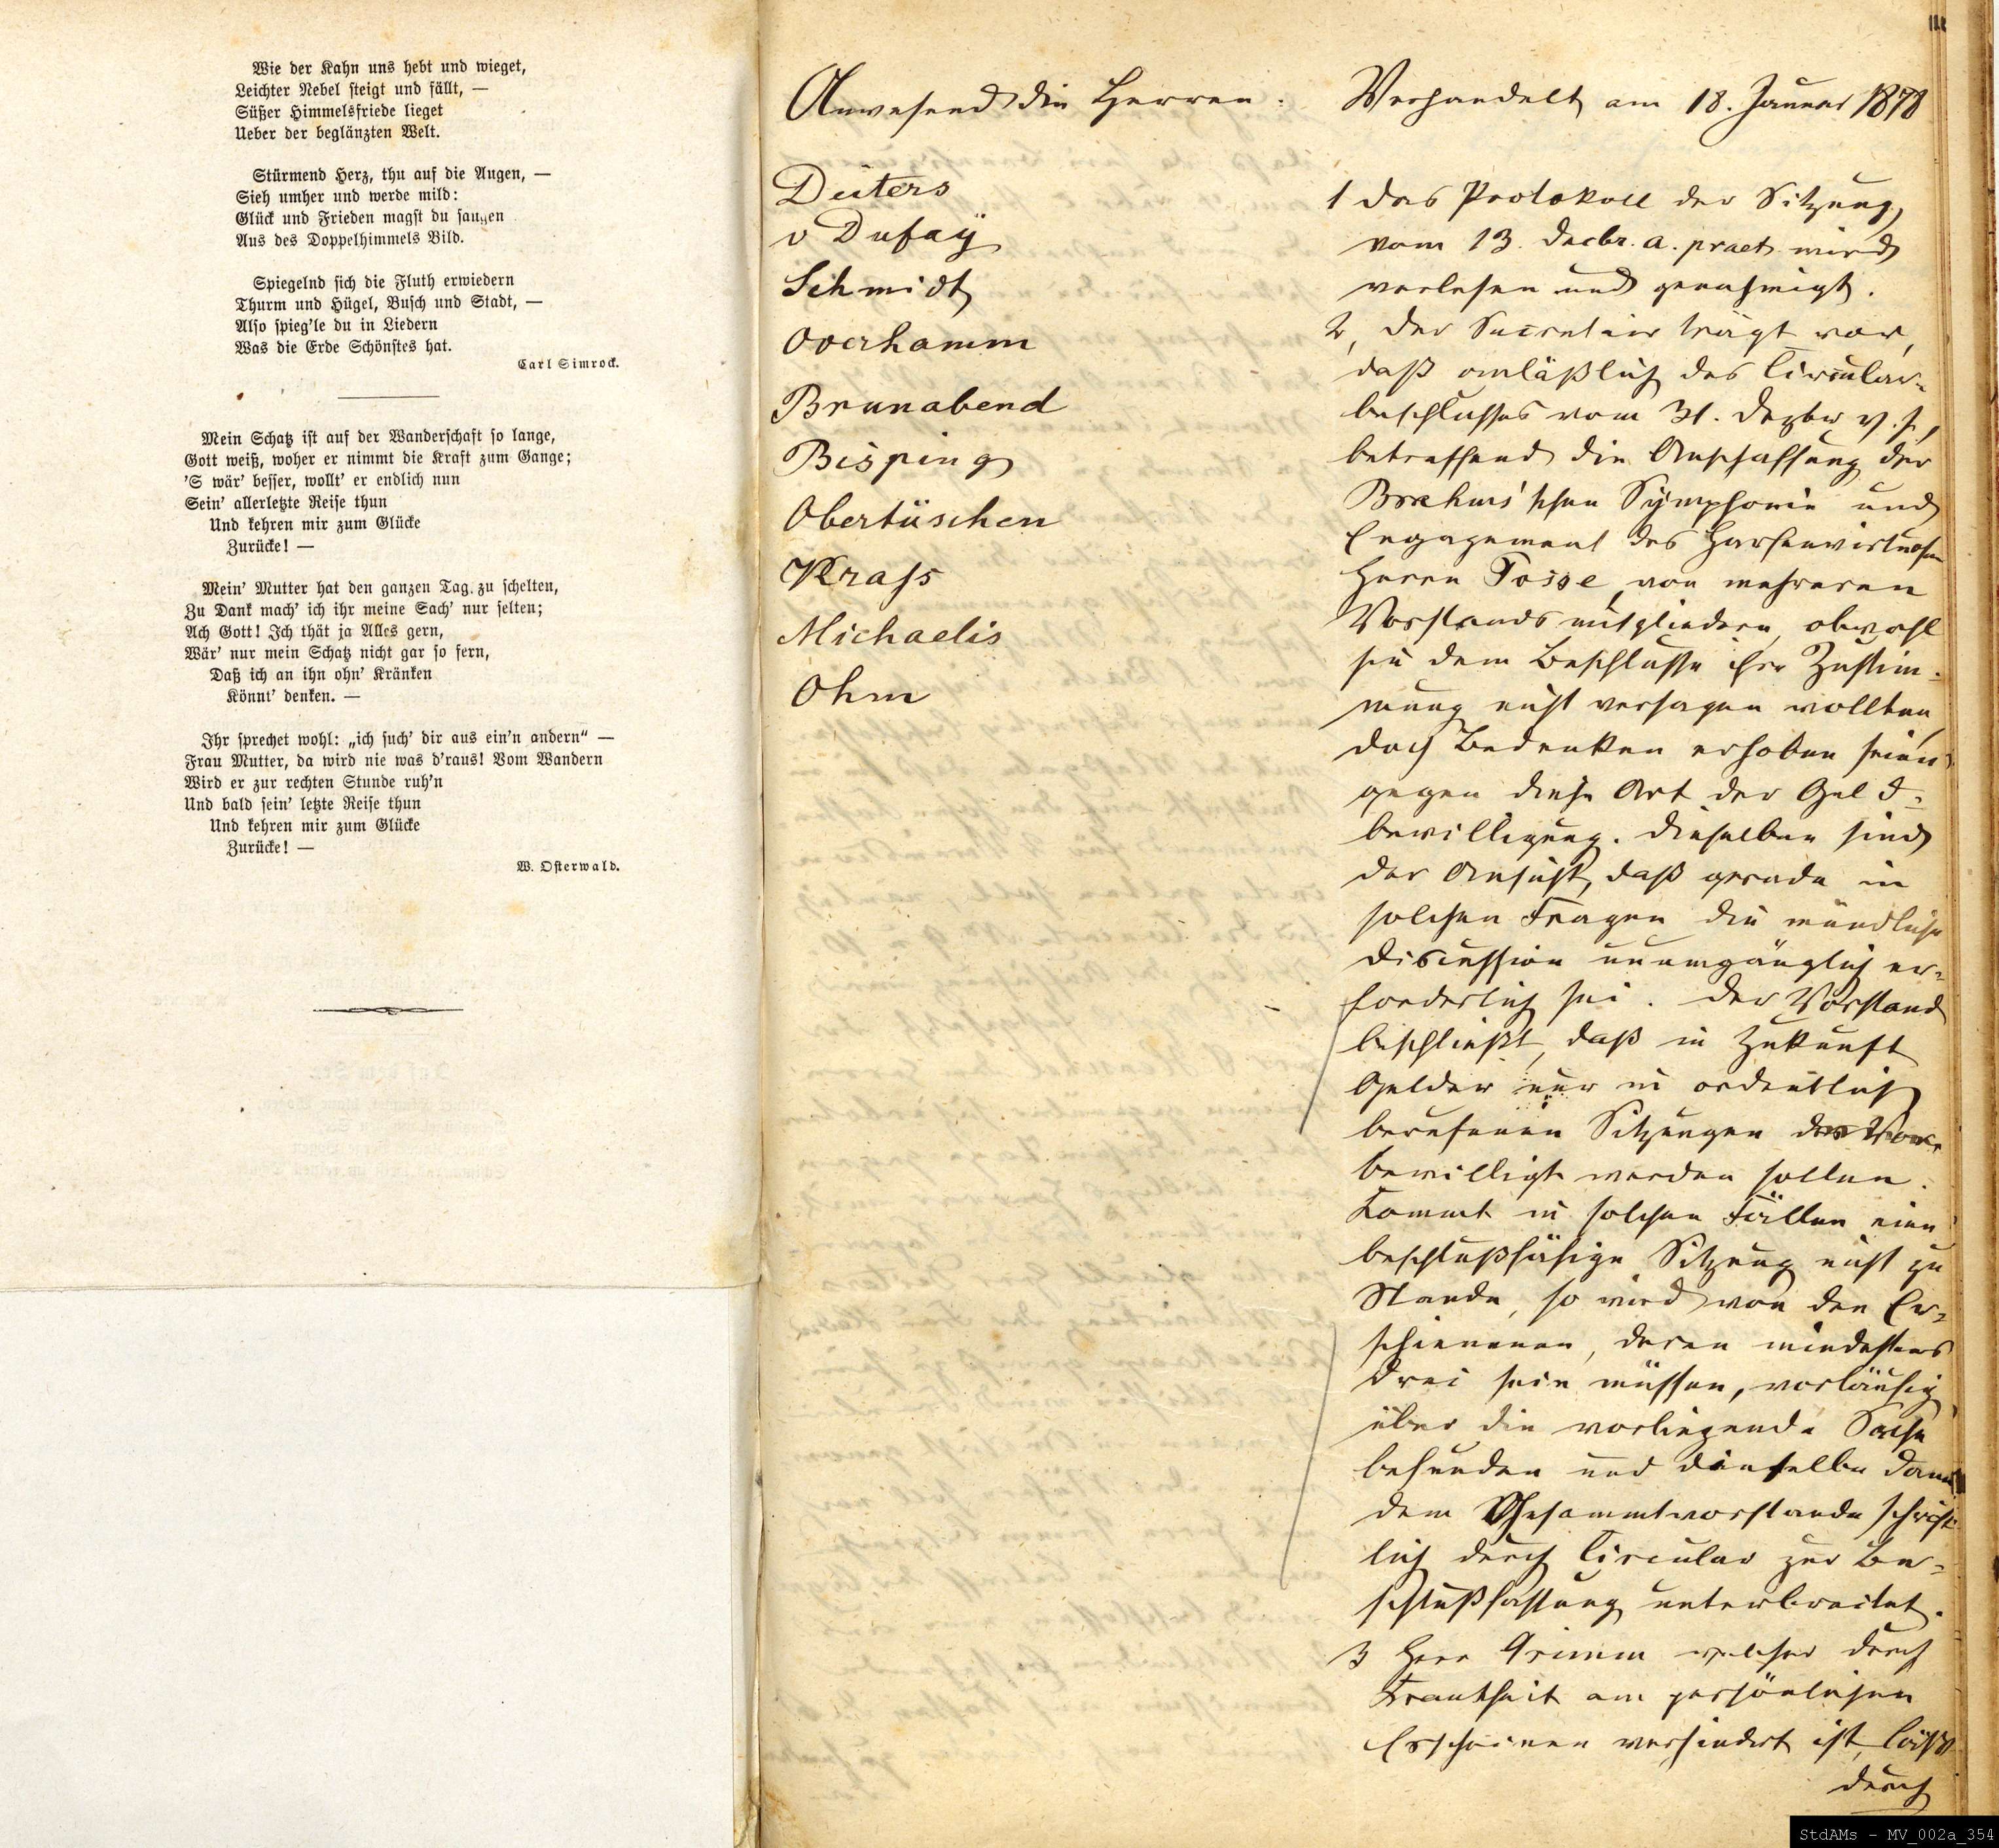 Wie der Kahn uns hebt und wieget,
Leichter Nebel steigt und fällt, —
Süßer Himmelsfriede lieget
Ueber der beglänzten Welt.
Stürmend Herz, thu auf die Augen, —
Sieh umher und werde mild:
Glück und Frieden magst du saugen
Aus des Doppelhimmels Bild.
Spiegelnd sich die Fluth erwiedern
Thurm und Hügel, Busch und Stadt, —
Also spieg'le du in Liedern
Was die Erde Schönstes hat.
Carl Simrock.
Mein Schatz ist auf der Wanderschaft so lange,
Gott weiß, woher er nimmt die Kraft zum Gange;
'S wär' besser, wollt' er endlich nun
Sein' allerletzte Reise thun
Und kehren mir zum Glücke
Zurücke! —
Mein' Mutter hat den ganzen Tag zu schelten,
Zu Dank mach' ich ihr meine Sach' nur selten;
Ach Gott! Ich thät ja Alles gern,
Wär' nur mein Schatz nicht gar so fern,
Daß ich an ihn ohn' Kränken
Könnt' denken. —
Ihr sprechet wohl: „ich such' dir aus ein'n andern" —
Frau Mutter, da wird nie was d'raus! Vom Wandern
Wird er zur rechten Stunde ruh'n
Und bald sein' letzte Reise thun
Und kehren mir zum Glücke
Zurücke! —
W. Osterwald.
Anwesend die Herren.
Deiters
v Dufay
Schmidt
Overhamm
Brunabend
Bisping
Obertüschen
Krass
Michaelis
Ohm
Verhandelt am 18. Januar 1878
1 Das Protokoll der Sitzung
vom 13. Decbr. a. praet. wird
verlesen und genehmigt.
2, Der Secretair trägt vor,
daß anläßlich des Circular-
beschlusses vom 31. Dezbr v. J.,
betreffend die Anschaffung der
Brahms'schen Symphonie und
Engagement des Harfenvirtuosen
Herrn Posse, von mehreren
Vorstandsmitgliedern, obwohl
sie dem Beschlusse ihre Zustim-
mung nicht versagen wollten,
doch Bedenken erhoben seien
gegen diese Art der Geld-
bewilligung. Dieselben sind
der Ansicht, daß gerade in
solchen Fragen die mündliche
Discussion unumgänglich er-
forderlich sei. Der Vorstand
beschließt, daß in Zukunft
Gelder nur in ordentlich
berufenen Sitzungen
bewilligt werden sollen.
Kommt in solchen Fällen eine
beschlußfähige Sitzung nicht zu
Stande, so wird von den Er-
schienenen, deren mindestens
drei sein müssen, vorläufig
über die vorliegende Sache
befunden und dieselbe dann
dem Gesammtvorstande schrift-
lich durch Circular zur Be-
schlußfassung unterbreitet.
3 Herr Grimm welcher durch
Krankheit am persönlichen
Erscheinen verhindert ist, läßt
durch
StdAMs – MV_002a_354